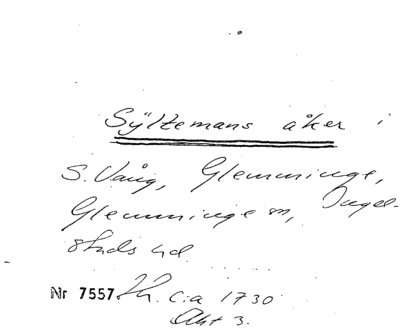 Syltemans åker i
S. Vång, Glemminge,
Glemminge sn, Ingel-
stads hd.
Nr 7557 Kr. c:a 1730
Akt 3.